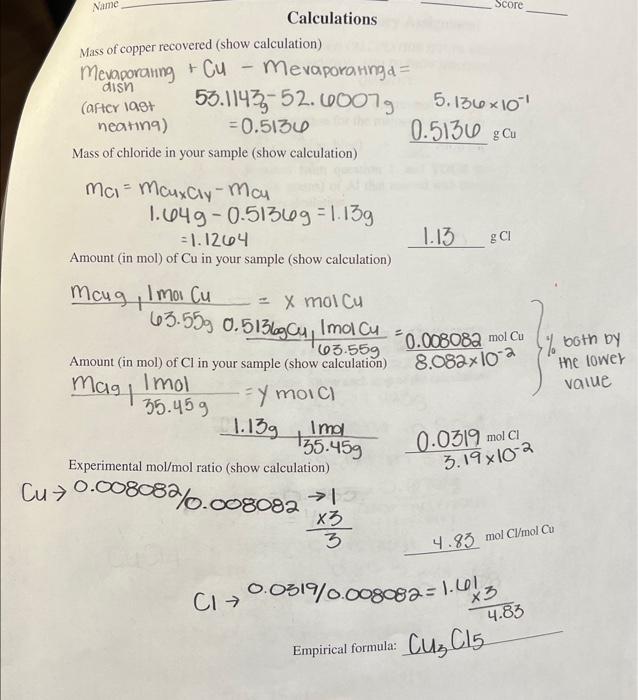 Name Score
Calculations
Mass of copper recovered (show calculation)
Mevaporating + Cu - Mevaporatingd =
dish
(after last 53.1143g - 52.6007g 5.136 x 10⁻¹
heating) = 0.5136 0.5136 g Cu
Mass of chloride in your sample (show calculation)
mCl = mCuxCly - mCu
1.64g - 0.5136g = 1.13g
= 1.1264 1.13 g Cl
Amount (in mol) of Cu in your sample (show calculation)
mcu g | 1 mol Cu = x mol Cu
63.55g 0.5136g Cu | 1 mol Cu = 0.008082 mol Cu
63.55g 8.082 x 10⁻² % both by
Amount (in mol) of Cl in your sample (show calculation) the lower
mcl g | 1 mol = y mol Cl value
35.45 g
1.13g | 1 mol 0.0319 mol Cl
35.45g 3.19 x 10⁻²
Experimental mol/mol ratio (show calculation)
Cu → 0.008082/0.008082 → 1
x3
3
4.83 mol Cl/mol Cu
Cl → 0.0319/0.008082 = 1.61
x3
4.83
Empirical formula: Cu3Cl5